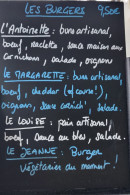 LES BURGERS 9,50€
L'Antoinette : bun artisanal,
boeuf, raclette, sauce maison aux
cornichons, salade, oignons
LE MARGARETTE : bun artisanal,
boeuf, cheddar (of course!),
oignons, sauce, salade.
LE LOUISE : pain artisanal,
boeuf, sauce au bleu, salade.
LE JEANNE : Burger
Végétarien du moment !